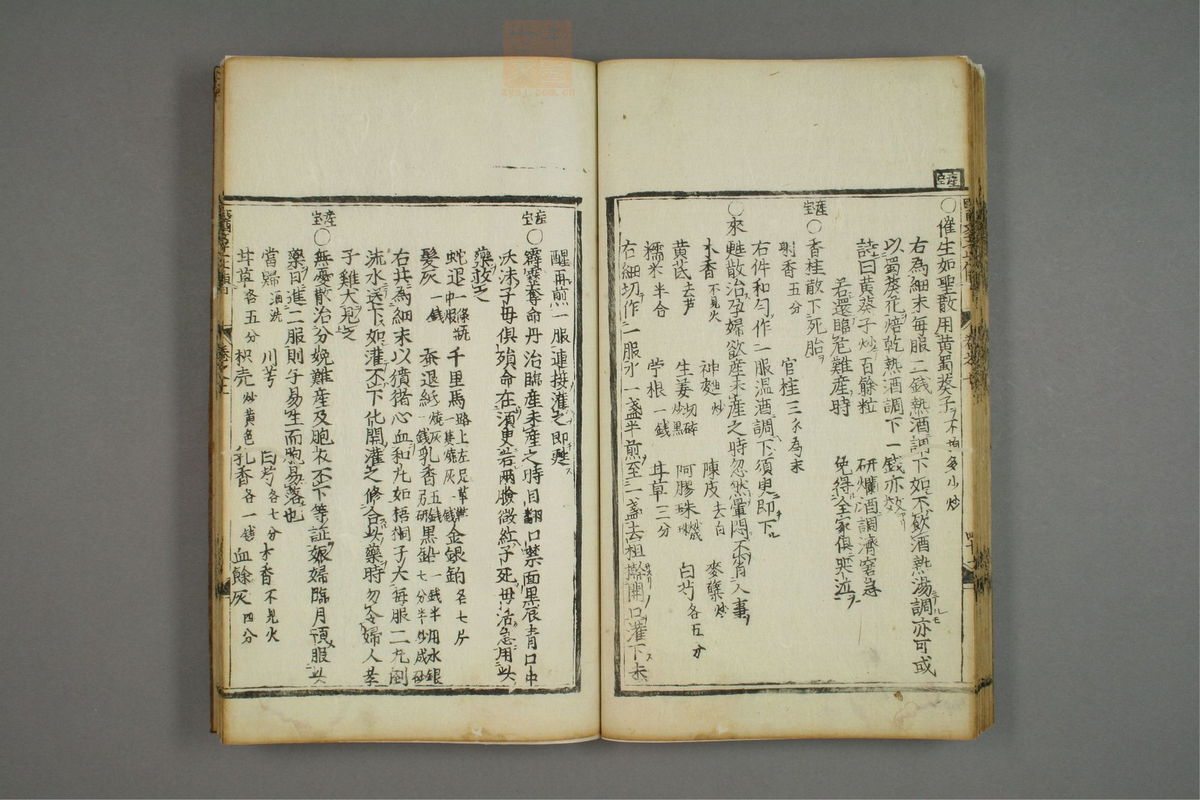 産宝
○催生如聖散用黄蜀葵子不拘多少炒
右為細末毎服二錢熱酒調下如不飲酒熱湯調亦可或
以蜀葵花焙乾熱酒調下一錢亦效
詩曰黄葵子炒百餘粒 研爛酒調濟窘急
若還臨危難産時 免得全家俱哭泣
産宝○香桂散下死胎
射香五分 官桂三錢為末
右件和勻作一服温酒調下須臾即下
○來甦散治孕婦欲産未産之時忽然暈悶不省人事
木香不見火 神麯炒 陳皮去白 麥櫱炒
黄茋去芦 生姜切碎炒黑 阿膠珠 白芍各五分
糯米半合 苧根一錢 甘草三分
右細切作一服水一盞半煎至一盞去柤 開口灌下未
醒再煎一服連接灌之即甦
産宝○霹靂奪命丹治臨産未産之時目翻口禁面黒唇青口中
沃沫子母俱殞命在須臾若兩臉微紅子死母活急用此
藥救之
蛇退一條瓶中 千里馬路上左足草鞋一隻燒灰一錢 金銀鉑各七片
髮灰一錢 蚕退紙燒灰一錢 乳香五錢另研 黒鉛一錢半用水銀七分半炒成砂
右共為細末以獖猪心血和丸如梧桐子大毎服二丸倒
流水送下如灌不下化開灌之修合此藥時勿令婦人孝
子雞犬見之
産宝○無憂散治分娩難産及胞衣不下等証娠婦臨月預服此
藥日進二服則子易生而胞易落也
當歸酒洗 川芎 白芍各七分 木香不見火
甘草各五分 枳壳炒黄色 乳香各一錢 血餘灰四分